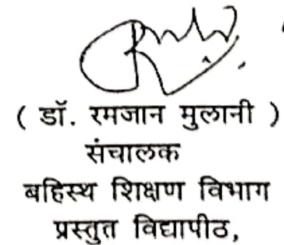 ( डॉ. रमजान मुलानी )
संचालक
बहिस्थ शिक्षण विभाग
प्रस्तुत विद्यापीठ,